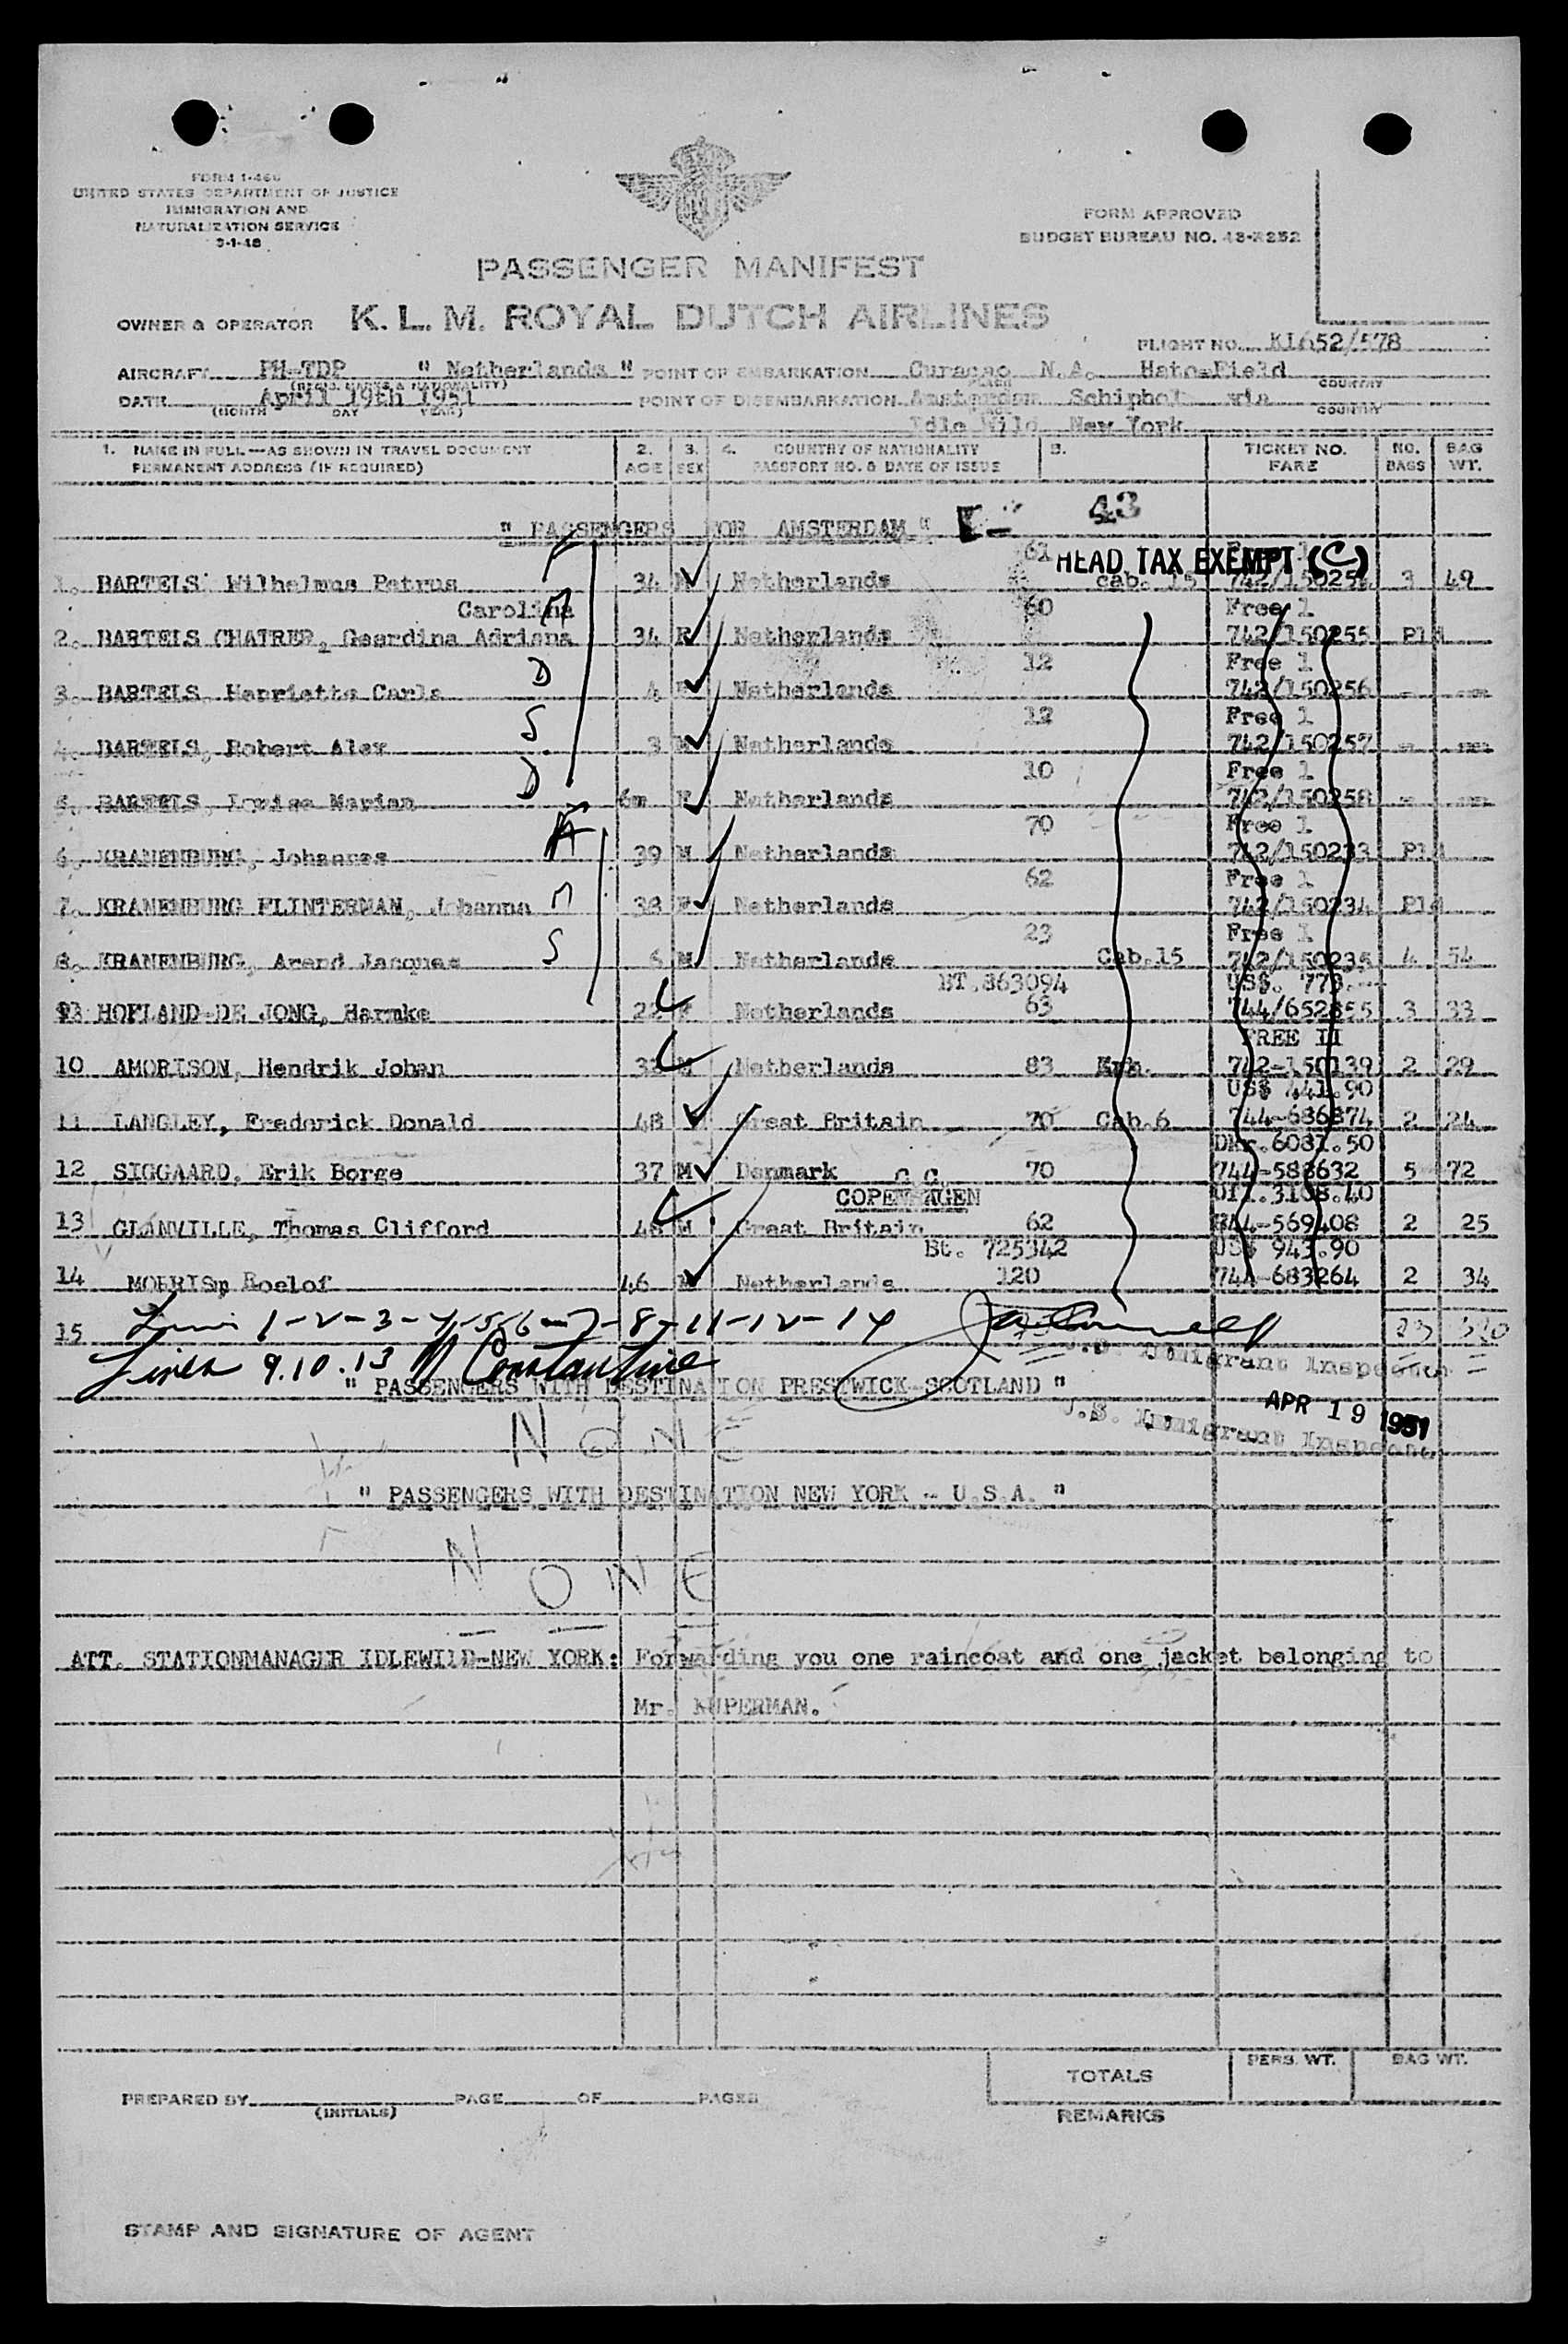 FORM I-466
UNITED STATES DEPARTMENT OF JUSTICE
IMMIGRATION AND
NATURALIZATION SERVICE
3-1-48
FORM APPROVED
BUDGET BUREAU NO. 43-R252
PASSENGER MANIFEST
OWNER & OPERATOR K. L. M. ROYAL DUTCH AIRLINES
FLIGHT NO. KL652/578
AIRCRAFT PH-TDP " Netherlands " POINT OF EMBARKATION Curacao N.A. Hato-Field
(REGIS. MARKS & NATIONALITY) PLACE COUNTRY
DATE April 19th 1951 POINT OF DISEMBARKATION Amsterdam Schiphol via
(MONTH DAY YEAR) PLACE COUNTRY
Idle Wild New York
1. NAME IN FULL—AS SHOWN IN TRAVEL DOCUMENT 2. 3. 4. COUNTRY OF NATIONALITY 5. TICKET NO. NO. BAG
PERMANENT ADDRESS (IF REQUIRED) AGE SEX PASSPORT NO. & DATE OF ISSUE FARE BAGS WT.
43
" PASSENGERS FOR AMSTERDAM "
61 HEAD TAX EXEMPT (C)
1. BARTELS Wilhelmus Petrus F 34 M Netherlands cab. 15 742/150254 3 49
Carolina M 60 Free 1
2. BARTELS CHATRER, Geardina Adriana 34 F Netherlands 742/150255 Pld
D 12 Free 1
3. BARTELS, Henriette Carla 4 F Netherlands 742/150256 - -
S 12 Free 1
4. BARTELS, Robert Alex 3 M Netherlands 742/150257 - -
D 10 Free 1
5. BARTELS, Louise Marian 6m F Netherlands 742/150258 - -
F 70 Free 1
6. KRANENBURG, Johannes 39 M Netherlands 742/150233 Pld
62 Free 1
7. KRANENBURG FLINTERMAN, Johanna M 38 F Netherlands 742/150234 Pld
S 23 Free 1
8. KRANENBURG, Arend Jacques 6 M Netherlands Cab.15 742/150235 4 54
BT.863094 US$. 773.--
HOFLAND-DE JONG, Harmke 22 F Netherlands 63 744/652855 3 33
FREE II
10 AMORISON, Hendrik Johan 32 M Netherlands 83 742-150139 2 29
US$ 441.90
11 LANGLEY, Frederick Donald 48 M Great Britain 70 Cab.6 744-686874 2 24
DKr.6081.50
12 SIGGAARD, Erik Borge 37 M Denmark C.C. 70 744-588632 5 72
COPENHAGEN Dfl.3108.40
13 GLANVILLE, Thomas Clifford 48 M Great Britain 62 744-569408 2 25
Bt. 725342 US$ 943.90
14 MOERIS, Roelof 46 M Netherlands 120 744-683264 2 34
15 Lines 1-2-3-4-5-6-7-8-11-12-14 23 320
U.S. Immigrant Inspector
Lines 9.10.13 Constantine
" PASSENGERS WITH DESTINATION PRESTWICK-SCOTLAND "
APR 19 1951
U.S. Immigrant Inspector
NONE
" PASSENGERS WITH DESTINATION NEW YORK - U.S.A. "
NONE
ATT. STATIONMANAGER IDLEWILD-NEW YORK: Forwarding you one raincoat and one jacket belonging to
Mr. KUPERMAN.
TOTALS PERS. WT. BAG WT.
PREPARED BY PAGE OF PAGES
(INITIALS)
REMARKS
STAMP AND SIGNATURE OF AGENT